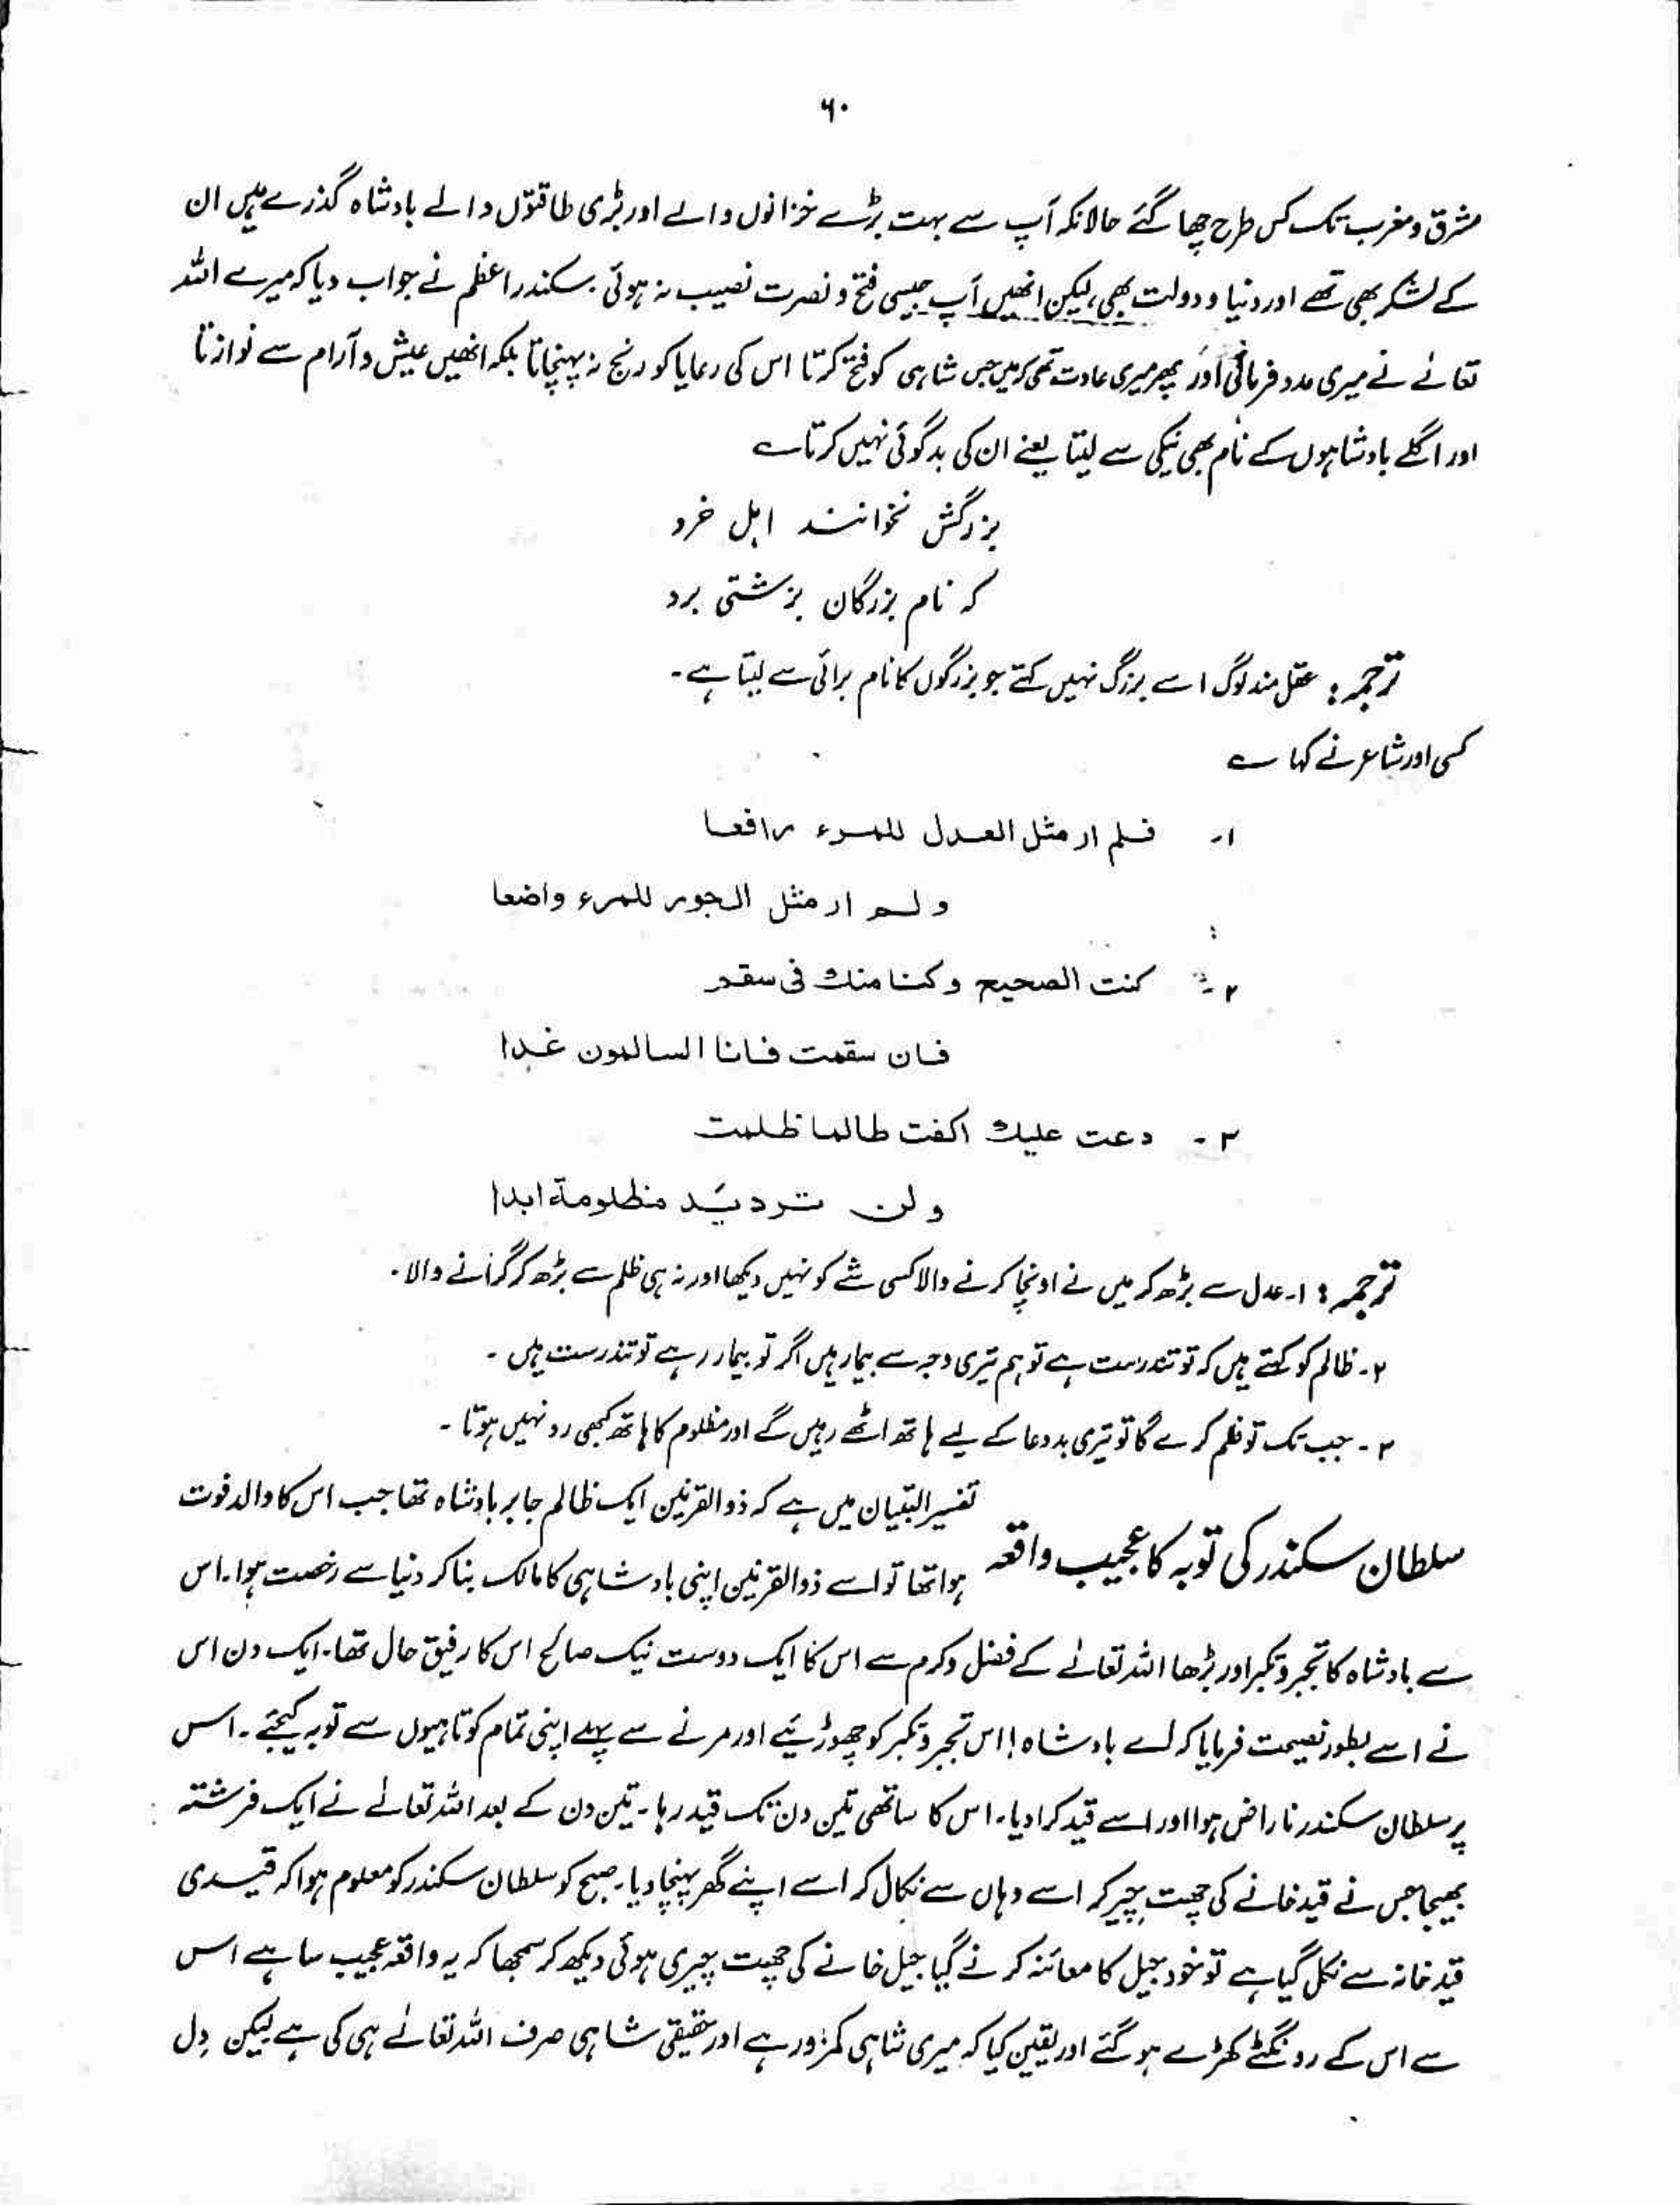 ۶۰
مشرق و مغرب تک کس طرح چھا گئے حالانکہ آپ سے بہت بڑے خزانوں والے اور بڑی طاقتوں والے بادشاہ گذرے ہیں ان
کے لشکر بھی تھے اور دنیا و دولت بھی، لیکن انھیں آپ جیسی فتح و نصرت نصیب نہ ہوئی۔ سکندر اعظم نے جواب دیا کہ میرے اللہ
تعالےٰ نے میری مدد فرمائی اور پھر میری عادت تھی کہ میں جس شاہی کو فتح کرتا اس کی رعایا کو رنج نہ پہنچاتا بلکہ انھیں عیش و آرام سے نوازتا
اور اگلے بادشاہوں کے نام بھی نیکی سے لیتا یعنے ان کی بدگوئی نہیں کرتا ؎
بزرگش نخوانند اہل خرد
کہ نام بزرگان بزشتی برد
ترجمہ: عقل مند لوگ اسے بزرگ نہیں کہتے جو بزرگوں کا نام برائی سے لیتا ہے۔
کسی اور شاعر نے کہا ؎
۱۔ فلم ار مثل العدل للمرء رافعا
ولم ار مثل الجور للمرء واضعا
۲۔ کنت الصحیح وکنا منک فی سقم
فان سقمت فانا السالمون غدا
۳۔ دعت علیک اکفت طالما ظلمت
ولن ترد ید مظلومة ابدا
ترجمہ: ۱۔ عدل سے بڑھ کر میں نے اونچا کرنے والا کسی شے کو نہیں دیکھا اور نہ ہی ظلم سے بڑھ کر گرانے والا۔
۲۔ ظالم کو کہتے ہیں کہ تو تندرست ہے تو ہم تیری وجہ سے بیمار ہیں اگر تو بیمار رہے تو تندرست ہیں۔
۳۔ جب تک تو ظلم کرے گا تو تیری بددعا کے لیے ہاتھ اٹھے رہیں گے اور مظلوم کا ہاتھ کبھی رد نہیں ہوتا۔
سلطان سکندر کی توبہ کا عجیب واقعہ
تفسیر التبیان میں ہے کہ ذوالقرنین ایک ظالم جابر بادشاہ تھا جب اس کا والد فوت
ہوا تھا تو اسے ذوالقرنین اپنی بادشاہی کا مالک بنا کر دنیا سے رخصت ہوا۔ اس
سے بادشاہ کا تجبر و تکبر اور بڑھا اللہ تعالےٰ کے فضل و کرم سے اس کا ایک دوست نیک صالح اس کا رفیق حال تھا۔ ایک دن اس
نے اسے بطور نصیحت فرمایا کہ اے بادشاہ! اس تجبر و تکبر کو چھوڑئیے اور مرنے سے پہلے اپنی تمام کوتاہیوں سے توبہ کیجئے۔ اس
پر سلطان سکندر ناراض ہوا اور اسے قید کرا دیا۔ اس کا ساتھی تین دن تک قید رہا۔ تین دن کے بعد اللہ تعالےٰ نے ایک فرشتہ
بھیجا جس نے قید خانے کی چھت چیر کر اسے وہاں سے نکال کر اسے اپنے گھر پہنچا دیا۔ صبح کو سلطان سکندر کو معلوم ہوا کہ قیدی
قید خانہ سے نکل گیا ہے تو خود جیل کا معائنہ کرنے گیا جیل خانے کی چھت چیری ہوئی دیکھ کر سمجھا کہ یہ واقعہ عجیب سا ہے اس
سے اس کے رونگٹے کھڑے ہو گئے اور یقین کیا کہ میری شاہی کمزور ہے اور حقیقی شاہی صرف اللہ تعالےٰ ہی کی ہے لیکن دل